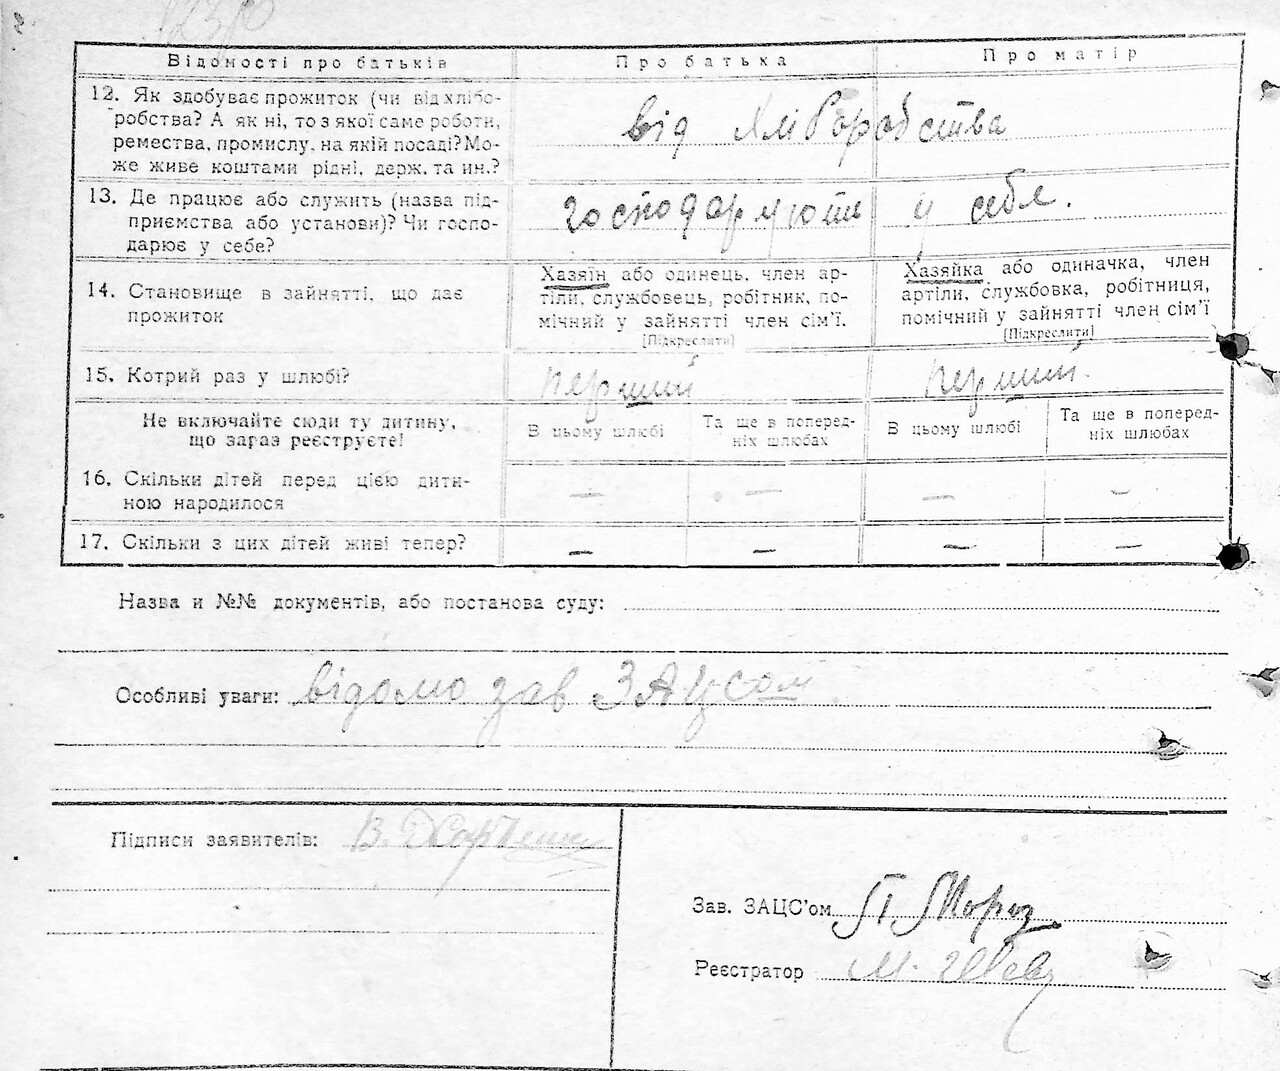 Відомості про батьків
Про батька
Про матір
12. Як здобуває прожиток (чи від хлібо-
робства? А як ні, то з якої саме роботи,
ремества, промислу, на якій посаді? Мо-
же живе коштами рідні, держ. та ин.?
від хліборобства
13. Де працює або служить (назва під-
приємства або установи)? Чи госпо-
дарює у себе?
господарюють у себе.
14. Становище в зайнятті, що дає
прожиток
Хазяїн або одинець, член ар-
тіли, службовець, робітник, по-
мічний у зайнятті член сім'ї.
[Підкреслити]
Хазяйка або одиначка, член
артіли, службовка, робітниця,
помічний у зайнятті член сім'ї
[Підкреслити]
15. Котрий раз у шлюбі?
перший
перший.
Не включайте сюди ту дитину,
що зараз реєструєте!
В цьому шлюбі
Та ще в поперед-
ніх шлюбах
В цьому шлюбі
Та ще в поперед-
ніх шлюбах
16. Скільки дітей перед цією дити-
ною народилося
— — — —
17. Скільки з цих дітей живі тепер?
— — — —
Назва и №№ документів, або постанова суду:
Особливі уваги: відомо зав ЗАЦСом
Підписи заявителів: В.
Зав. ЗАЦС'ом П Мороз
Реєстратор М.